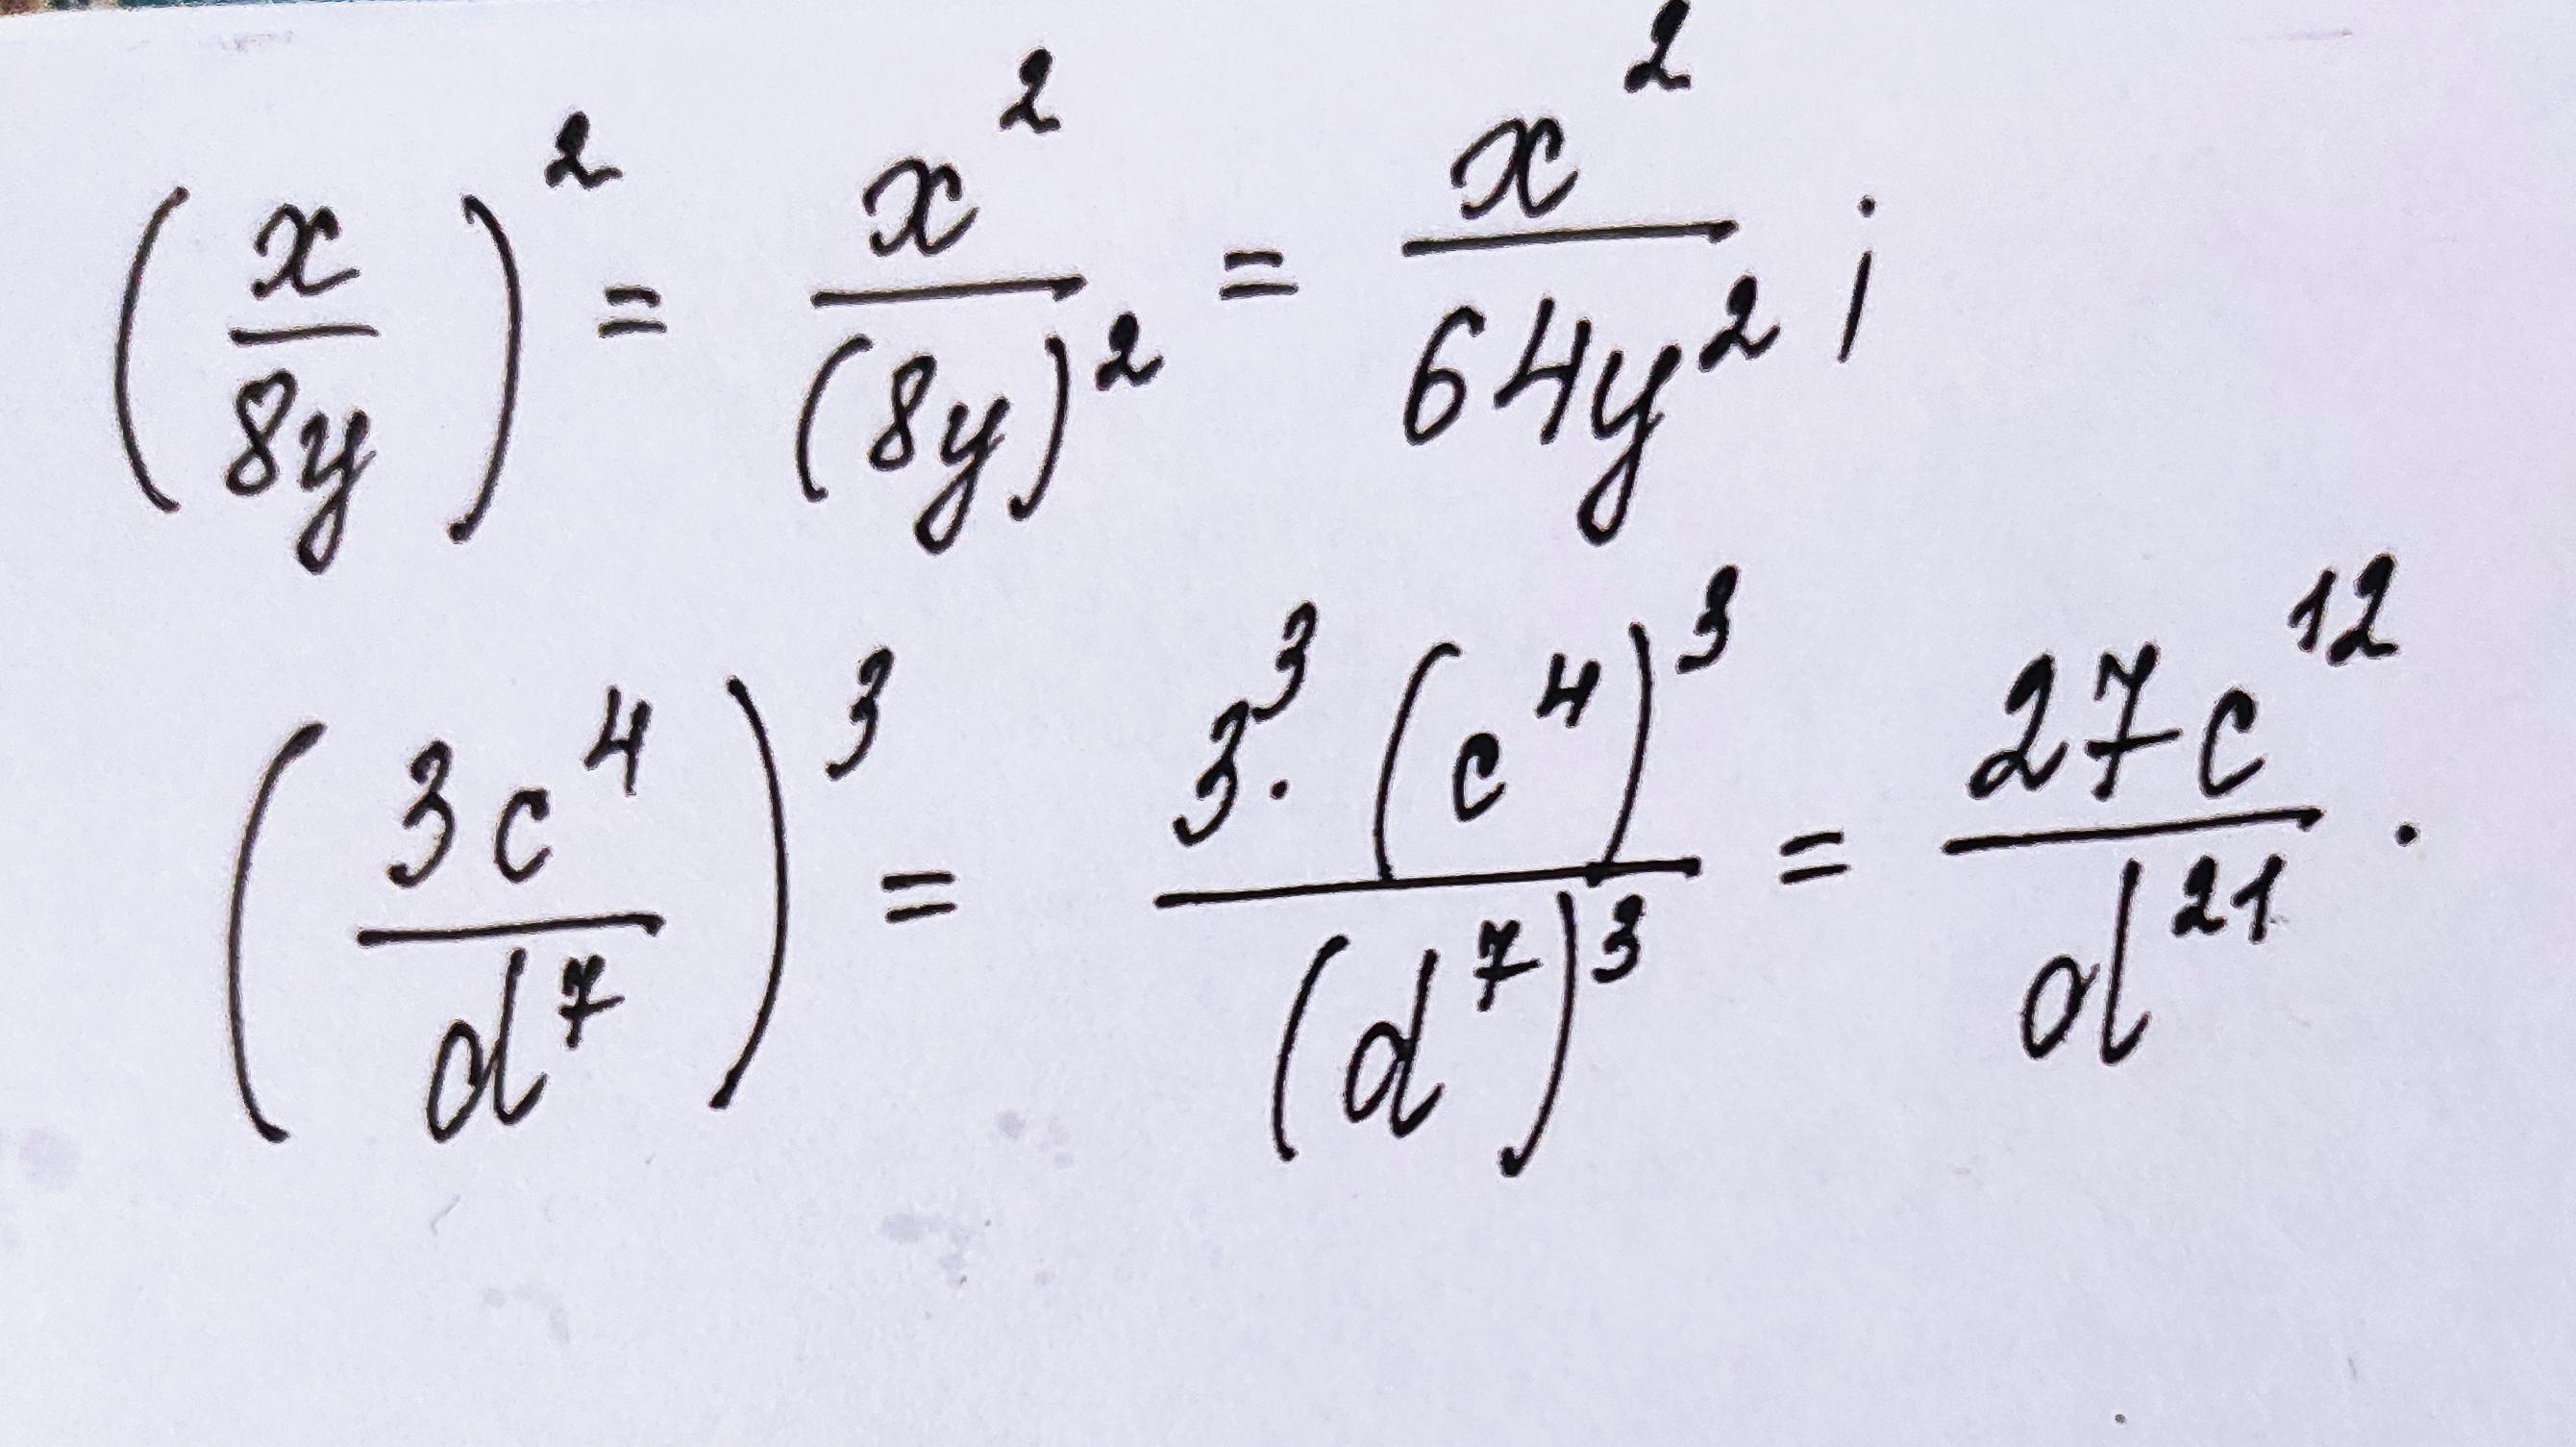 (x/8y)² = x²/(8y)² = x²/64y² ;
(3c⁴/d⁷)³ = 3³·(c⁴)³/(d⁷)³ = 27c¹²/d²¹ .